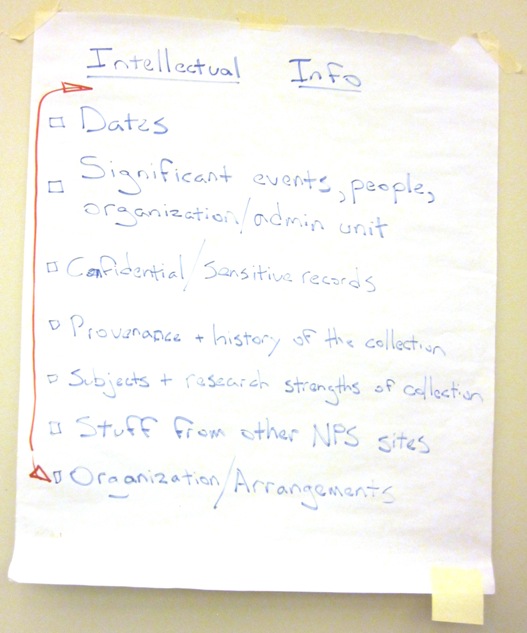 Intellectual Info
Dates
Significant events, people,
organization/admin unit
Confidential/Sensitive records
Provenance + history of the collection
Subjects + research strengths of collection
Stuff from other NPS sites
Organization/Arrangements